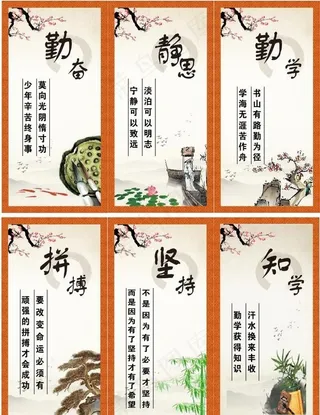 勤奋
莫向光阴惰寸功
少年辛苦终身事
静思
淡泊可以明志
宁静可以致远
勤学
书山有路勤为径
学海无涯苦作舟
拼搏
要改变命运必须有
顽强的拼搏才会成功
坚持
不是因为有了必要才坚持
而是因为有了坚持才有了希望
知学
汗水换来丰收
勤学获得知识